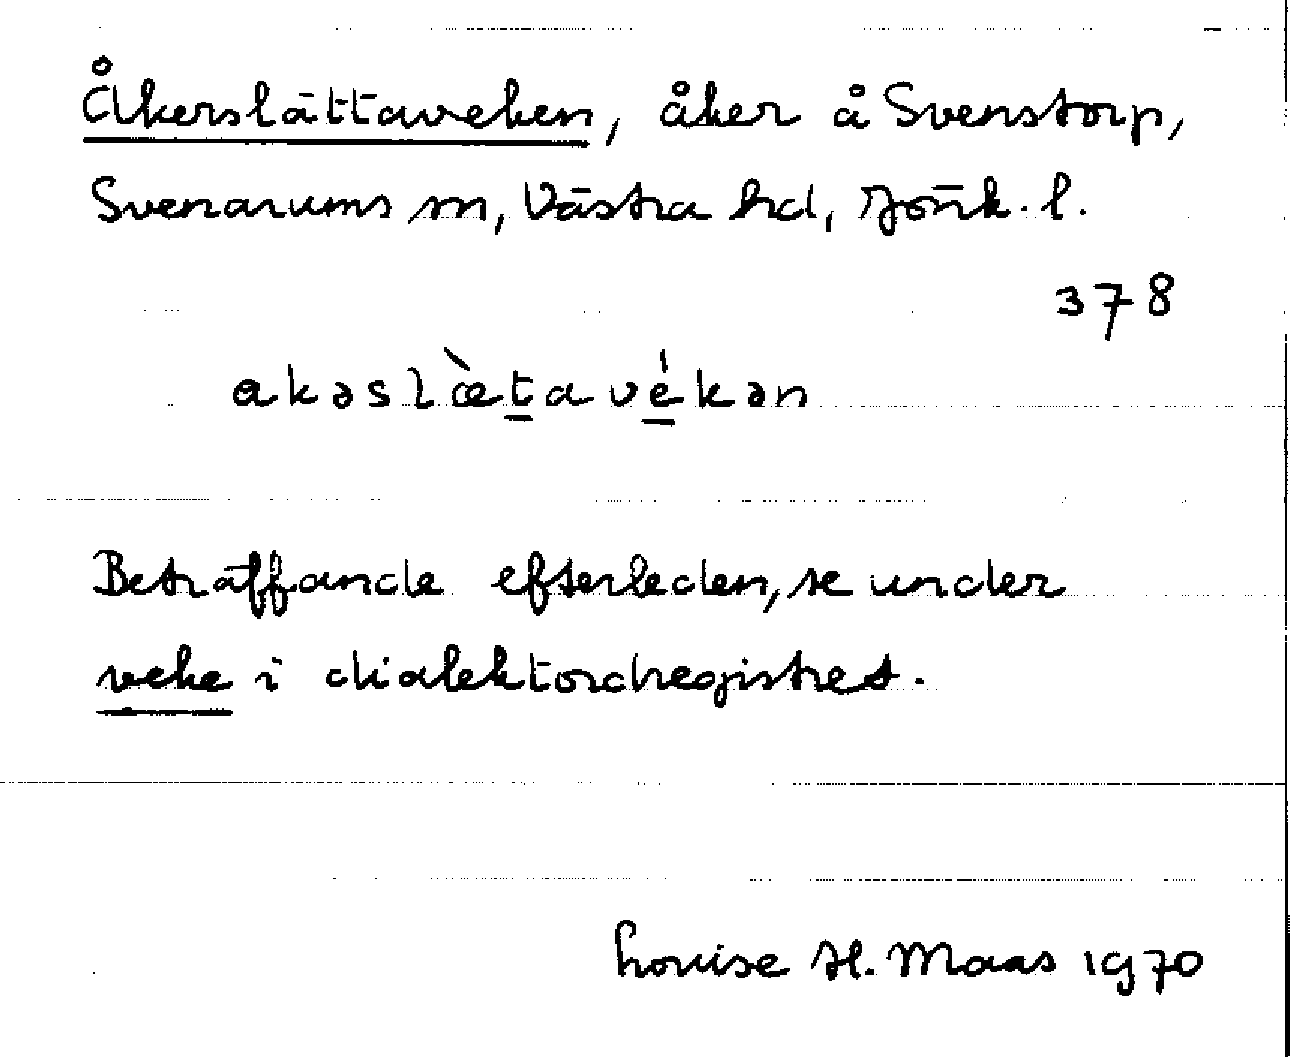 Åkerslättaveken, åker å Svenstorp,
Svenarums sn, Västra hd, Jönk. l.
378
akəslæ̀tavékən
Beträffande efterleden, se under
veke i dialektordregistret.
Louise H. Maas 1970